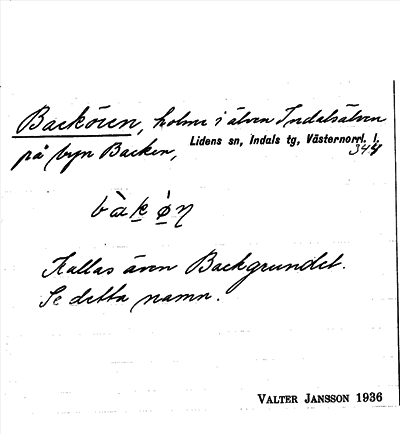 Backören, holme i älven Indalsälven
på byn Backen, Lidens sn, Indals tg, Västernorrl. l.
344
bàkø̀η
Kallas även Backgrundet.
Se detta namn.
VALTER JANSSON 1936